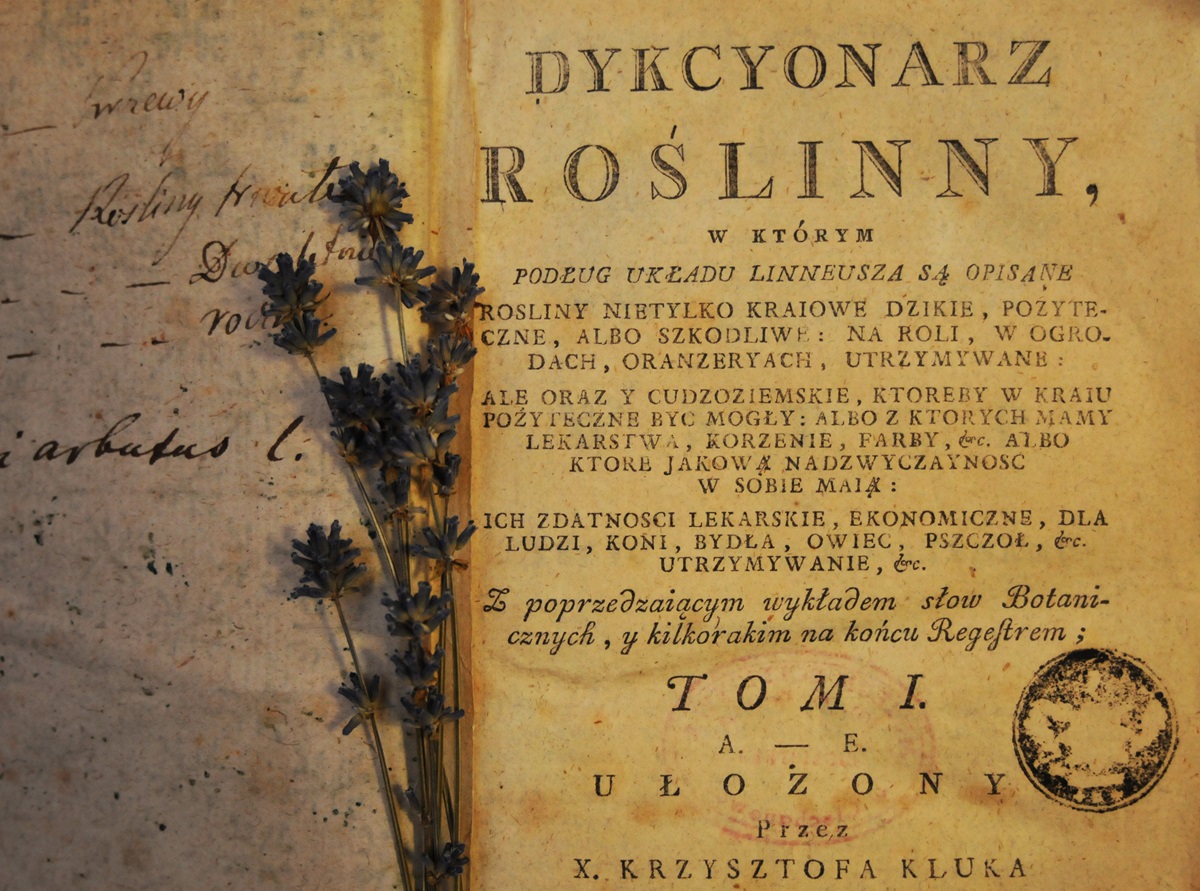 Krzewy
Rosliny trwałe
i arbutus l.
DYKCYONARZ
ROŚLINNY,
W KTÓRYM
PODŁUG UKŁADU LINNEUSZA SĄ OPISANE
ROSLINY NIETYLKO KRAIOWE DZIKIE, POZYTE-
CZNE, ALBO SZKODLIWE: NA ROLI, W OGRO-
DACH, ORANZERYACH, UTRZYMYWANE:
ALE ORAZ Y CUDZOZIEMSKIE, KTOREBY W KRAIU
POŻYTECZNE BYC MOGŁY: ALBO Z KTORYCH MAMY
LEKARSTWA, KORZENIE, FARBY, &c. ALBO
KTORE JAKOWĄ NADZWYCZAYNOSC
W SOBIE MAIĄ:
ICH ZDATNOSCI LEKARSKIE, EKONOMICZNE, DLA
LUDZI, KONI, BYDŁA, OWIEC, PSZCZOŁ, &c.
UTRZYMYWANIE, &c.
Z poprzedzaiącym wykładem słow Botani-
cznych, y kilkorakim na końcu Regeſtrem;
TOM I.
A. — E.
UŁOŻONY
Przez
X. KRZYSZTOFA KLUKA